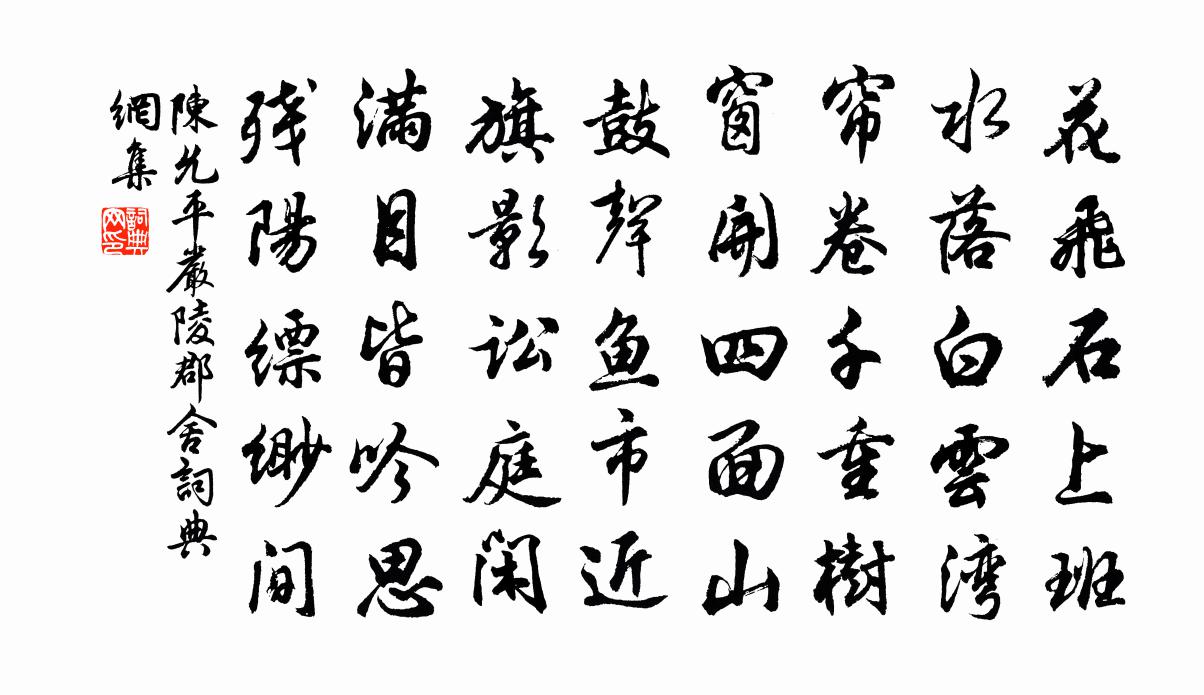 花飛石上班
水落白雲湾
帘卷千重樹
窗開四面山
鼓聲鱼市近
旗影訟庭闲
满目皆吟思
残陽缥缈间
陳允平嚴陵郡舍詞典
網集
詞典
网印